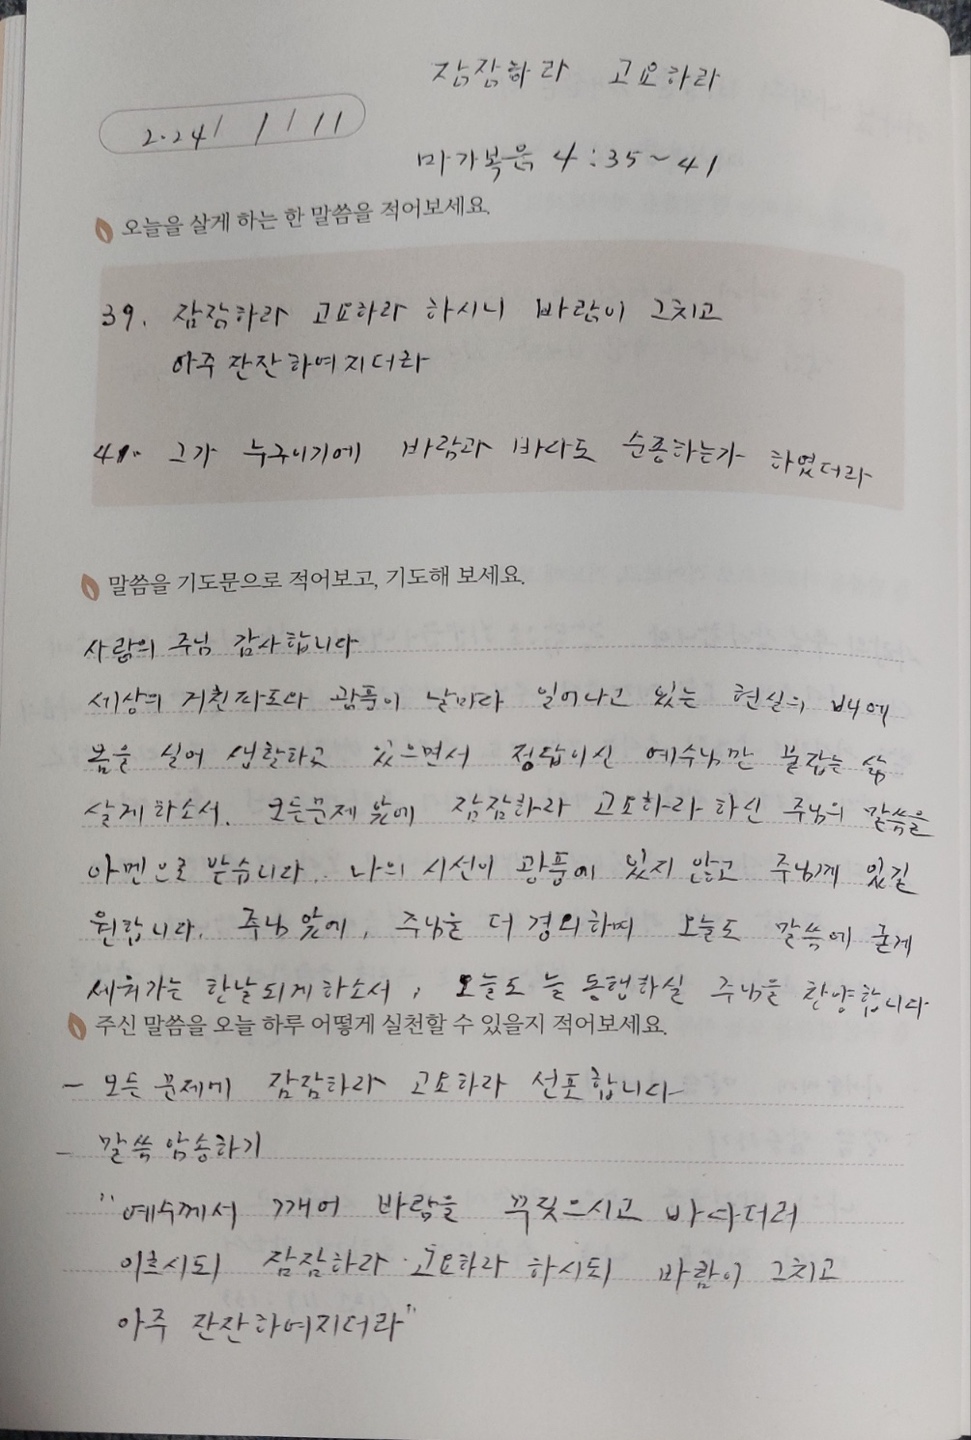 잠잠하라 고요하라
2.24/ 1/11
마가복음 4:35~41
오늘을 살게 하는 한 말씀을 적어보세요.
39. 잠잠하라 고요하라 하시니 바람이 그치고
아주 잔잔하여지더라
41. 그가 누구이기에 바람과 바다도 순종하는가 하였더라
말씀을 기도문으로 적어보고, 기도해 보세요.
사랑의 주님 감사합니다
세상의 거친파도와 광풍이 날마다 일어나고 있는 현실의 배에
몸을 실어 생활하고 있으면서 정답이신 예수님만 붙잡는 삶
살게 하소서. 모든문제 앞에 잠잠하라 고요하라 하신 주님의 말씀을
아멘으로 받습니다. 나의 시선이 광풍에 있지 않고 주님께 있길
원합니다. 주님 앞에, 주님을 더 경외하며 오늘도 말씀에 굳게
세워가는 한날되게 하소서, 오늘도 늘 동행하실 주님을 찬양합니다
주신 말씀을 오늘 하루 어떻게 실천할 수 있을지 적어보세요.
- 모든 문제에 잠잠하라 고요하라 선포합니다
- 말씀 암송하기
"예수께서 깨어 바람을 꾸짖으시고 바다더러
이르시되 잠잠하라 고요하라 하시되 바람이 그치고
아주 잔잔하여지더라"